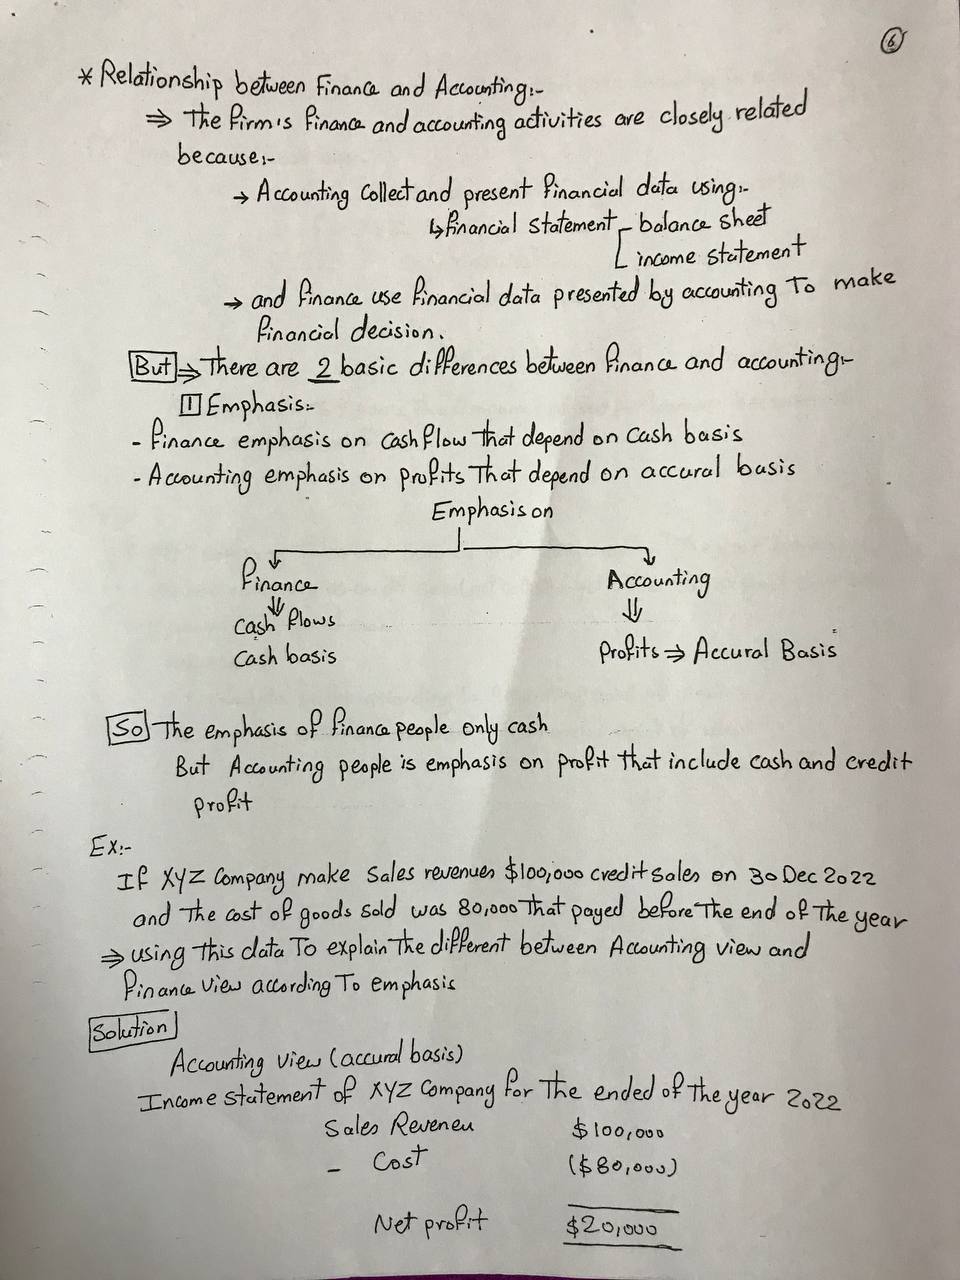 6
* Relationship between Finance and Accounting:-
⇒ The firm's finance and accounting activities are closely related
because:-
→ Accounting Collect and present financial data using:-
↳ financial statement - balance sheet
income statement
→ and finance use financial data presented by accounting To make
financial decision.
But ⇒ There are 2 basic differences between finance and accounting:-
1 Emphasis:-
- finance emphasis on cash flow that depend on cash basis
- Accounting emphasis on profits That depend on accural basis
Emphasis on
Finance Accounting
⇓ ⇓
Cash flows
Cash basis Profits ⇒ Accural Basis
So The emphasis of finance people only cash
But Accounting people is emphasis on profit that include cash and credit
profit
Ex:-
If XYZ Company make Sales revenues $100,000 credit sales on 30 Dec 2022
and The cost of goods sold was 80,000 That payed before The end of The year
⇒ using This data To explain The different between Accounting view and
finance view according To emphasis
Solution
Accounting view (accural basis)
Income statement of XYZ Company for The ended of The year 2022
Sales Reveneu $100,000
- Cost ($80,000)
Net profit $20,000